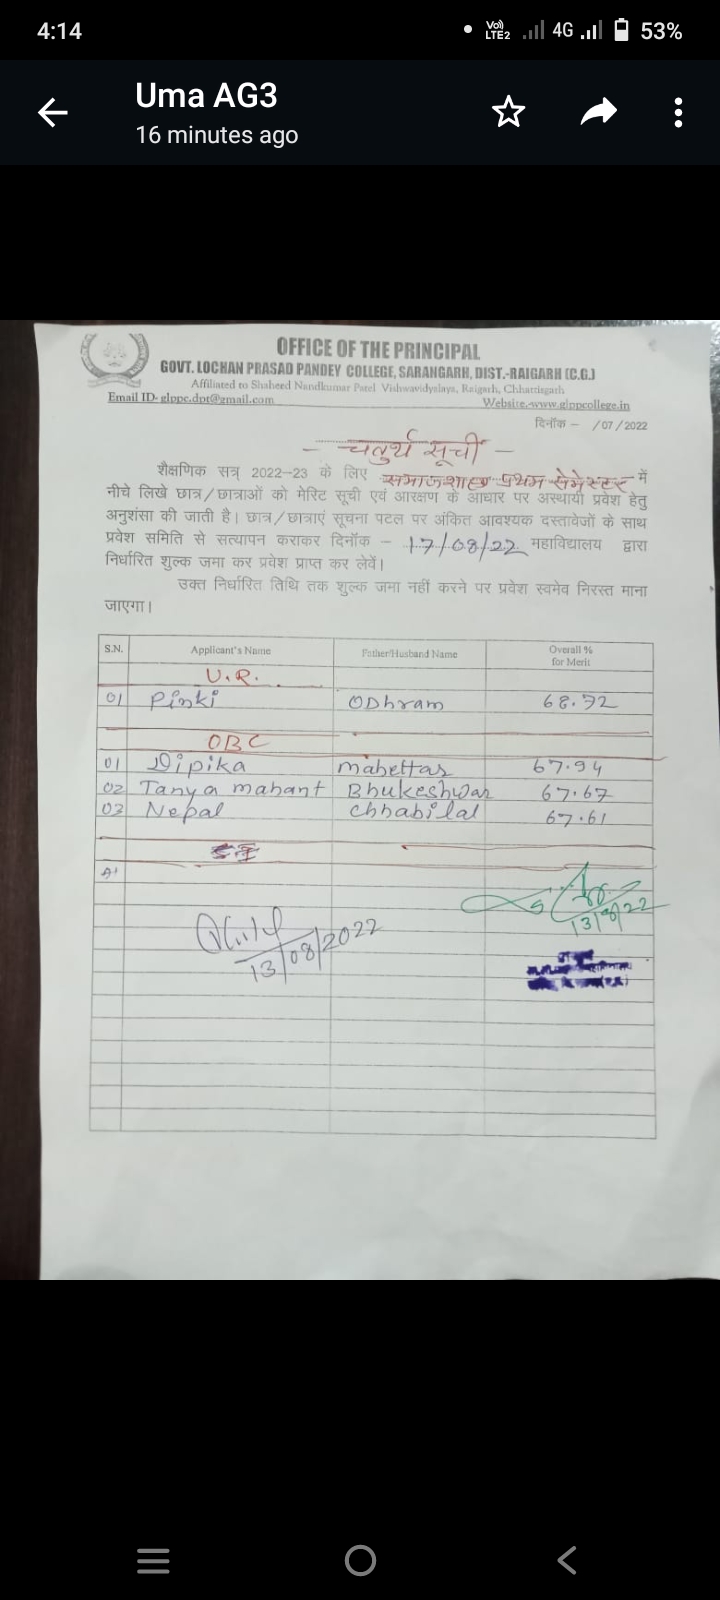 4:14
Vo)) LTE2 4G 53%
Uma AG3
16 minutes ago
OFFICE OF THE PRINCIPAL
GOVT. LOCHAN PRASAD PANDEY COLLEGE, SARANGARH, DIST.-RAIGARH (C.G.)
Affiliated to Shaheed Nandkumar Patel Vishwavidyalaya, Raigarh, Chhattisgarh
Email ID- glppc.dpt@gmail.com Website.-www.glppcollege.in
दिनॉक – /07/2022
– चतुर्थ सूची –
शैक्षणिक सत्र 2022-23 के लिए समाजशास्त्र प्रथम सेमेस्टर में
नीचे लिखे छात्र/छात्राओं को मेरिट सूची एवं आरक्षण के आधार पर अस्थायी प्रवेश हेतु
अनुशंसा की जाती है। छात्र/छात्राएं सूचना पटल पर अंकित आवश्यक दस्तावेजों के साथ
प्रवेश समिति से सत्यापन कराकर दिनॉक – 17/08/22 महाविद्यालय द्वारा
निर्धारित शुल्क जमा कर प्रवेश प्राप्त कर लेवें।
उक्त निर्धारित तिथि तक शुल्क जमा नहीं करने पर प्रवेश स्वमेव निरस्त माना
जाएगा।
S.N. Applicant's Name Father/Husband Name Overall % for Merit
U.R.
01 Pinki ODhram 68.72
OBC
01 Dipika mahettar 67.94
02 Tanya mahant Bhukeshwar 67.67
03 Nepal chhabilal 67.61
13/08/22
13/08/2022